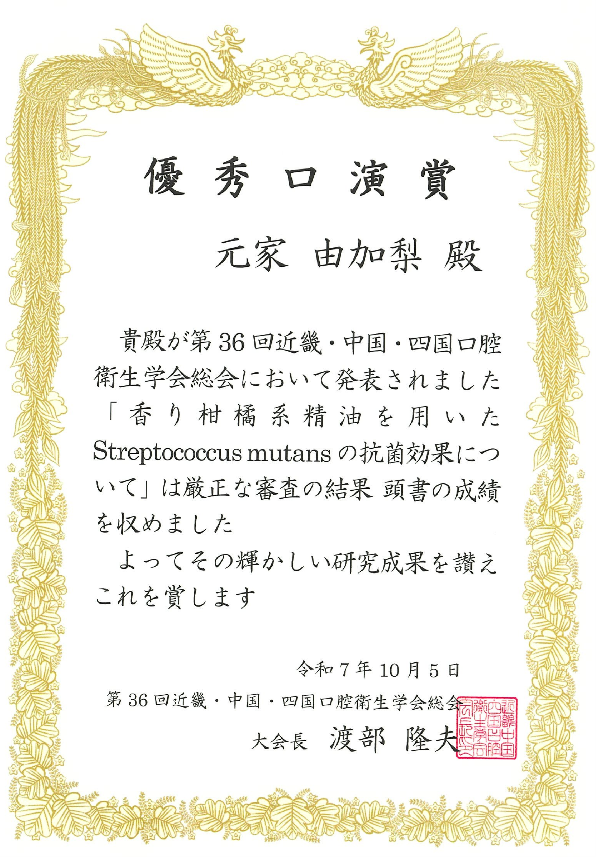 優秀口演賞
元家 由加梨 殿
貴殿が第36回近畿・中国・四国口腔
衛生学会総会において発表されました
「香り柑橘系精油を用いた
Streptococcus mutans の抗菌効果につ
いて」は厳正な審査の結果 頭書の成績
を収めました
よってその輝かしい研究成果を讃え
これを賞します
令和7年10月5日
第36回近畿・中国・四国口腔衛生学会総会
大会長 渡部 隆夫